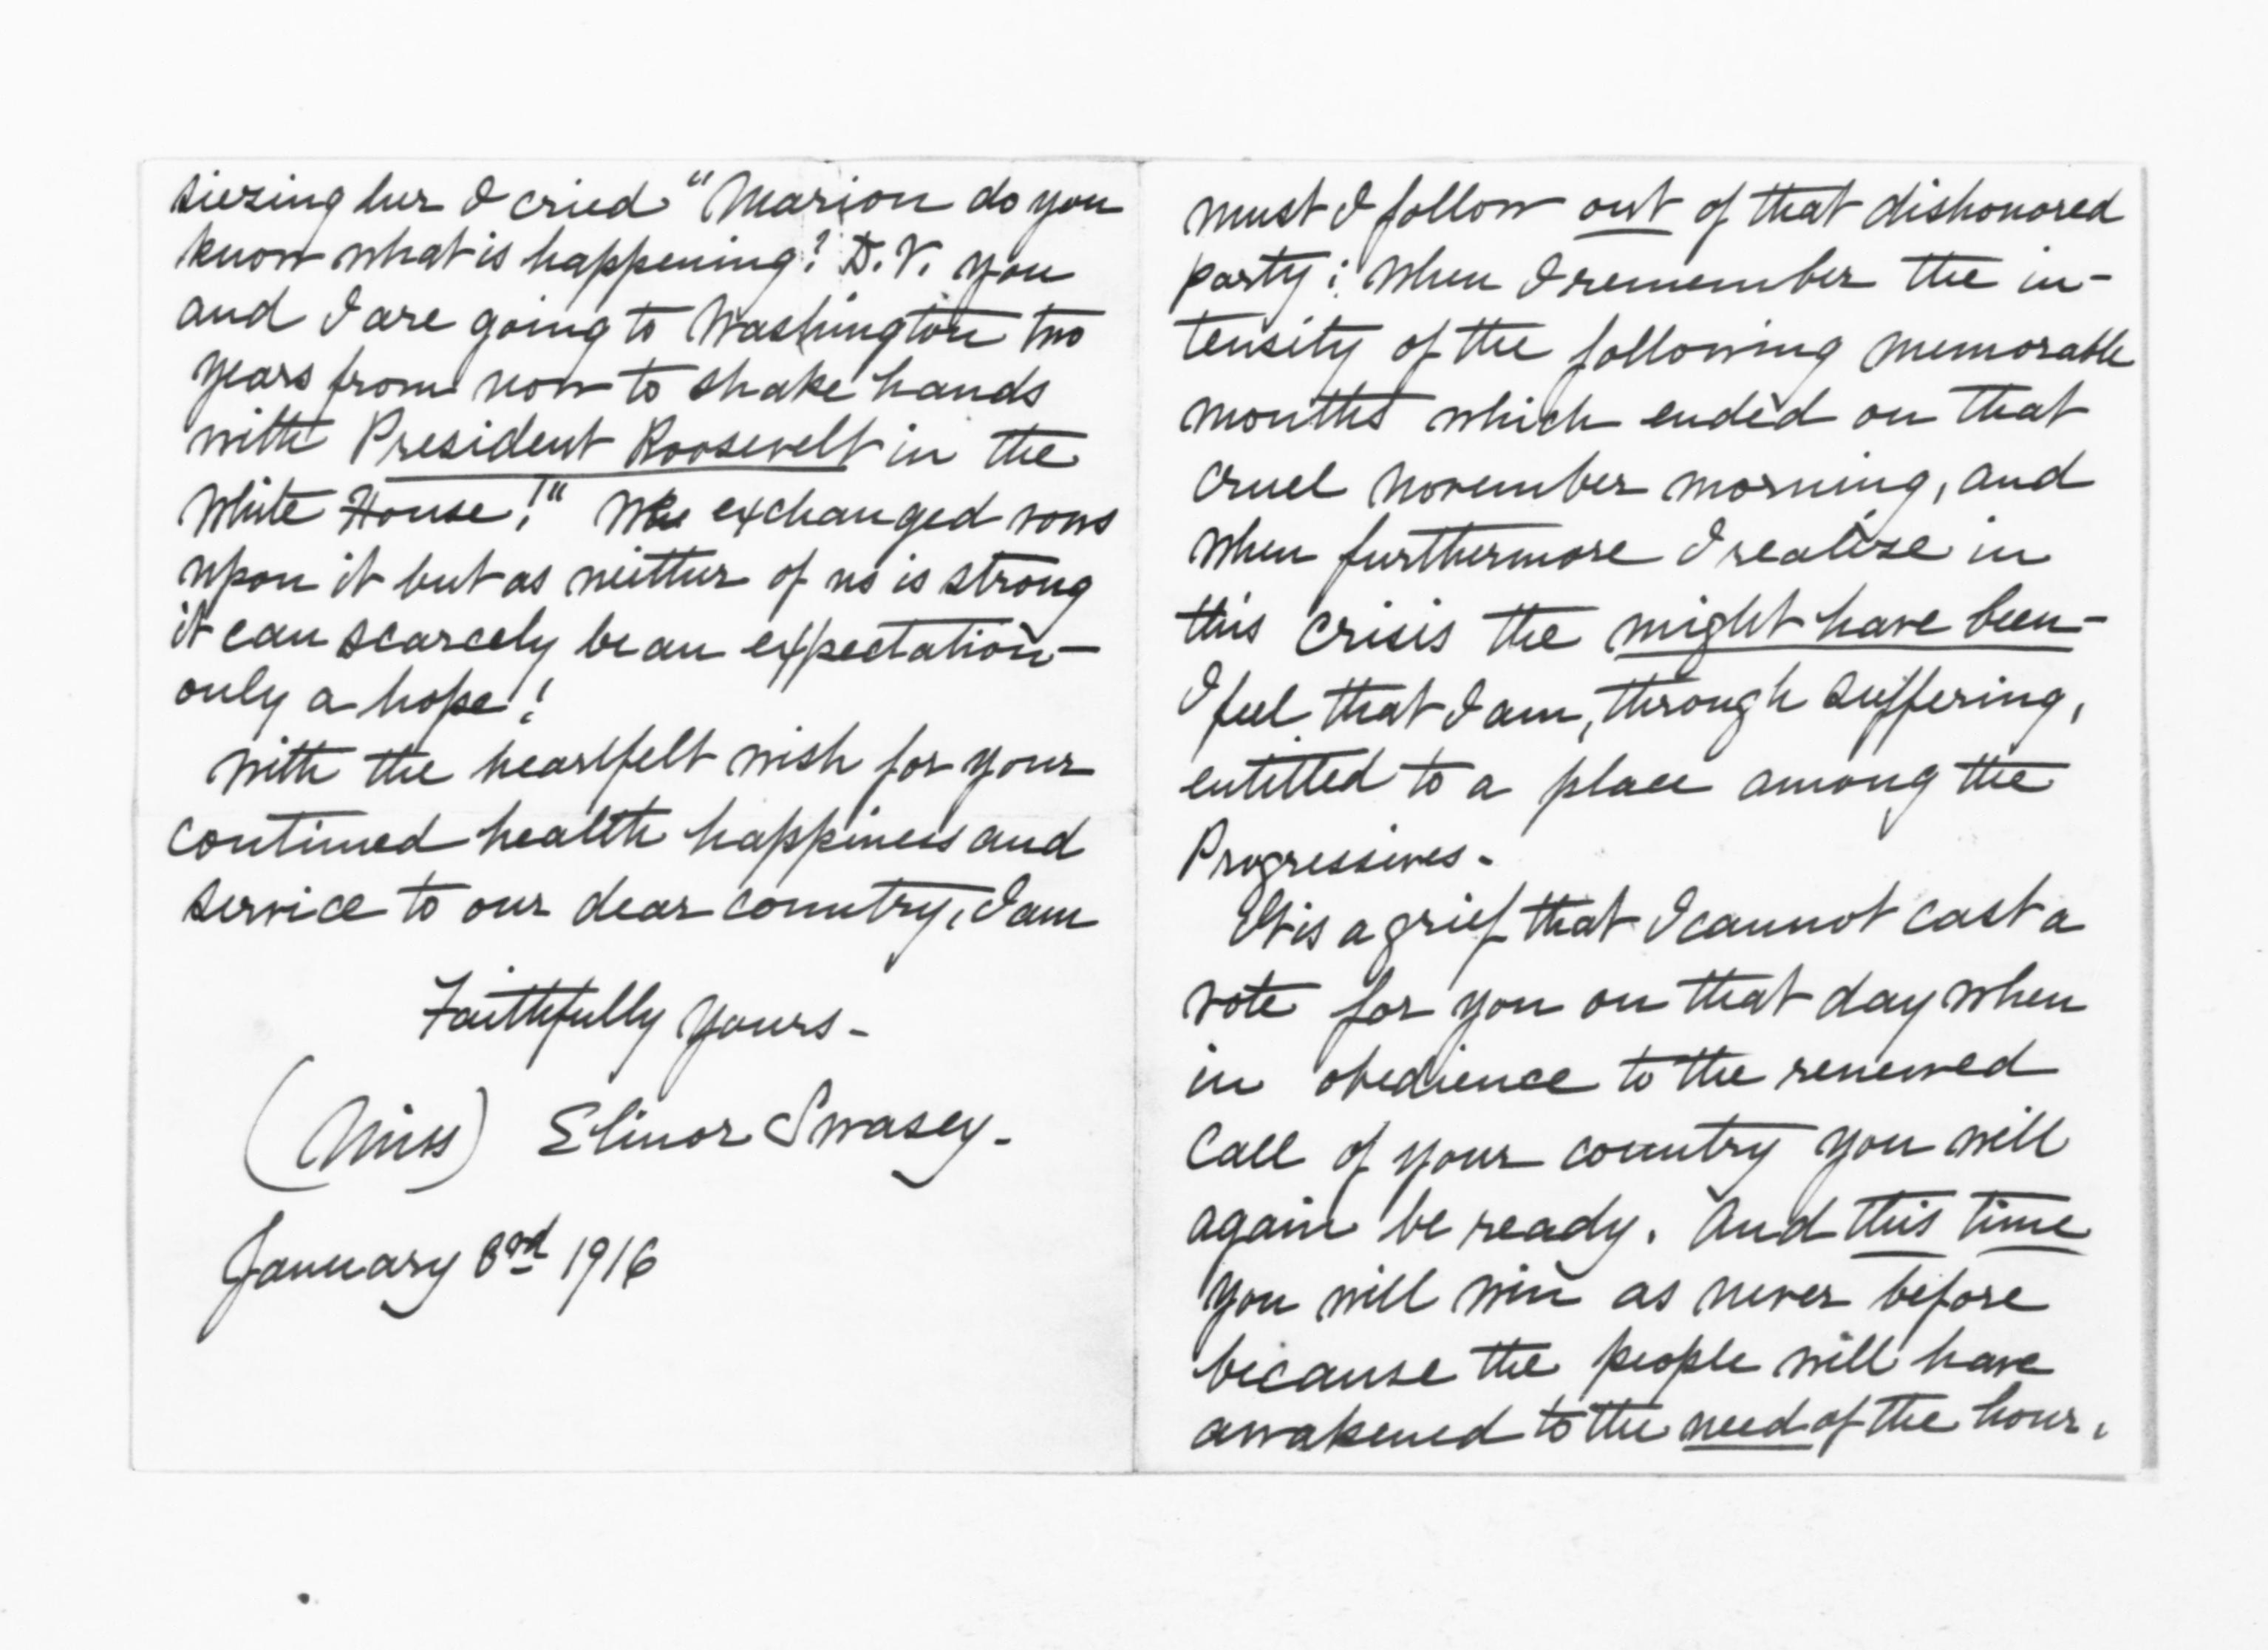 siezing her I cried "Marion do you
know what is happening? D.V. you
and I are going to Washington two
years from now to shake hands
with President Roosevelt in the
White House!" We exchanged vows
upon it but as neither of us is strong
it can scarcely be an expectation—
only a hope!
With the heartfelt wish for your
continued health happiness and
service to our dear country, I am
Faithfully Yours-
(Miss) Elinor Swasey-
January 3rd 1916
must I follow out of that dishonored
party; when I remember the in-
tensity of the following memorable
months which ended on that
cruel November morning, and
when furthermore I realize in
this crisis the might have been-
I feel that I am, through suffering,
entitled to a place among the
Progressives-
It is a grief that I cannot cast a
vote for you on that day when
in obedience to the renewed
call of your country you will
again be ready. And this time
you will win as never before
because the people will have
awakened to the need of the hour.